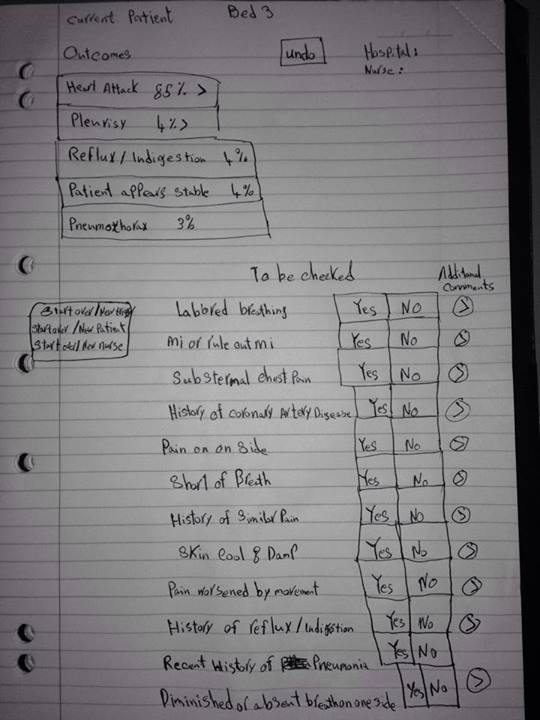 Current Patient Bed 3
Outcomes undo Hospital:
Nurse:
Heart Attack 85% >
Pleurisy 4% >
Reflux / Indigestion 4%
Patient appears stable 4%
Pneumothorax 3%
To be checked Additional comments
Start over / New
Startover / New Patient
Startover / New nurse
Labored breathing Yes No >
Mi or rule out mi Yes No >
Substernal chest Pain Yes No >
History of coronary Artery Disease Yes No >
Pain on on side Yes No >
Short of Breath Yes No >
History of Similar Pain Yes No >
Skin cool & Damp Yes No >
Pain worsened by movement Yes No >
History of reflux / Indigestion Yes No >
Recent History of Pneumonia Yes No
Diminished or absent breath on one side Yes No >